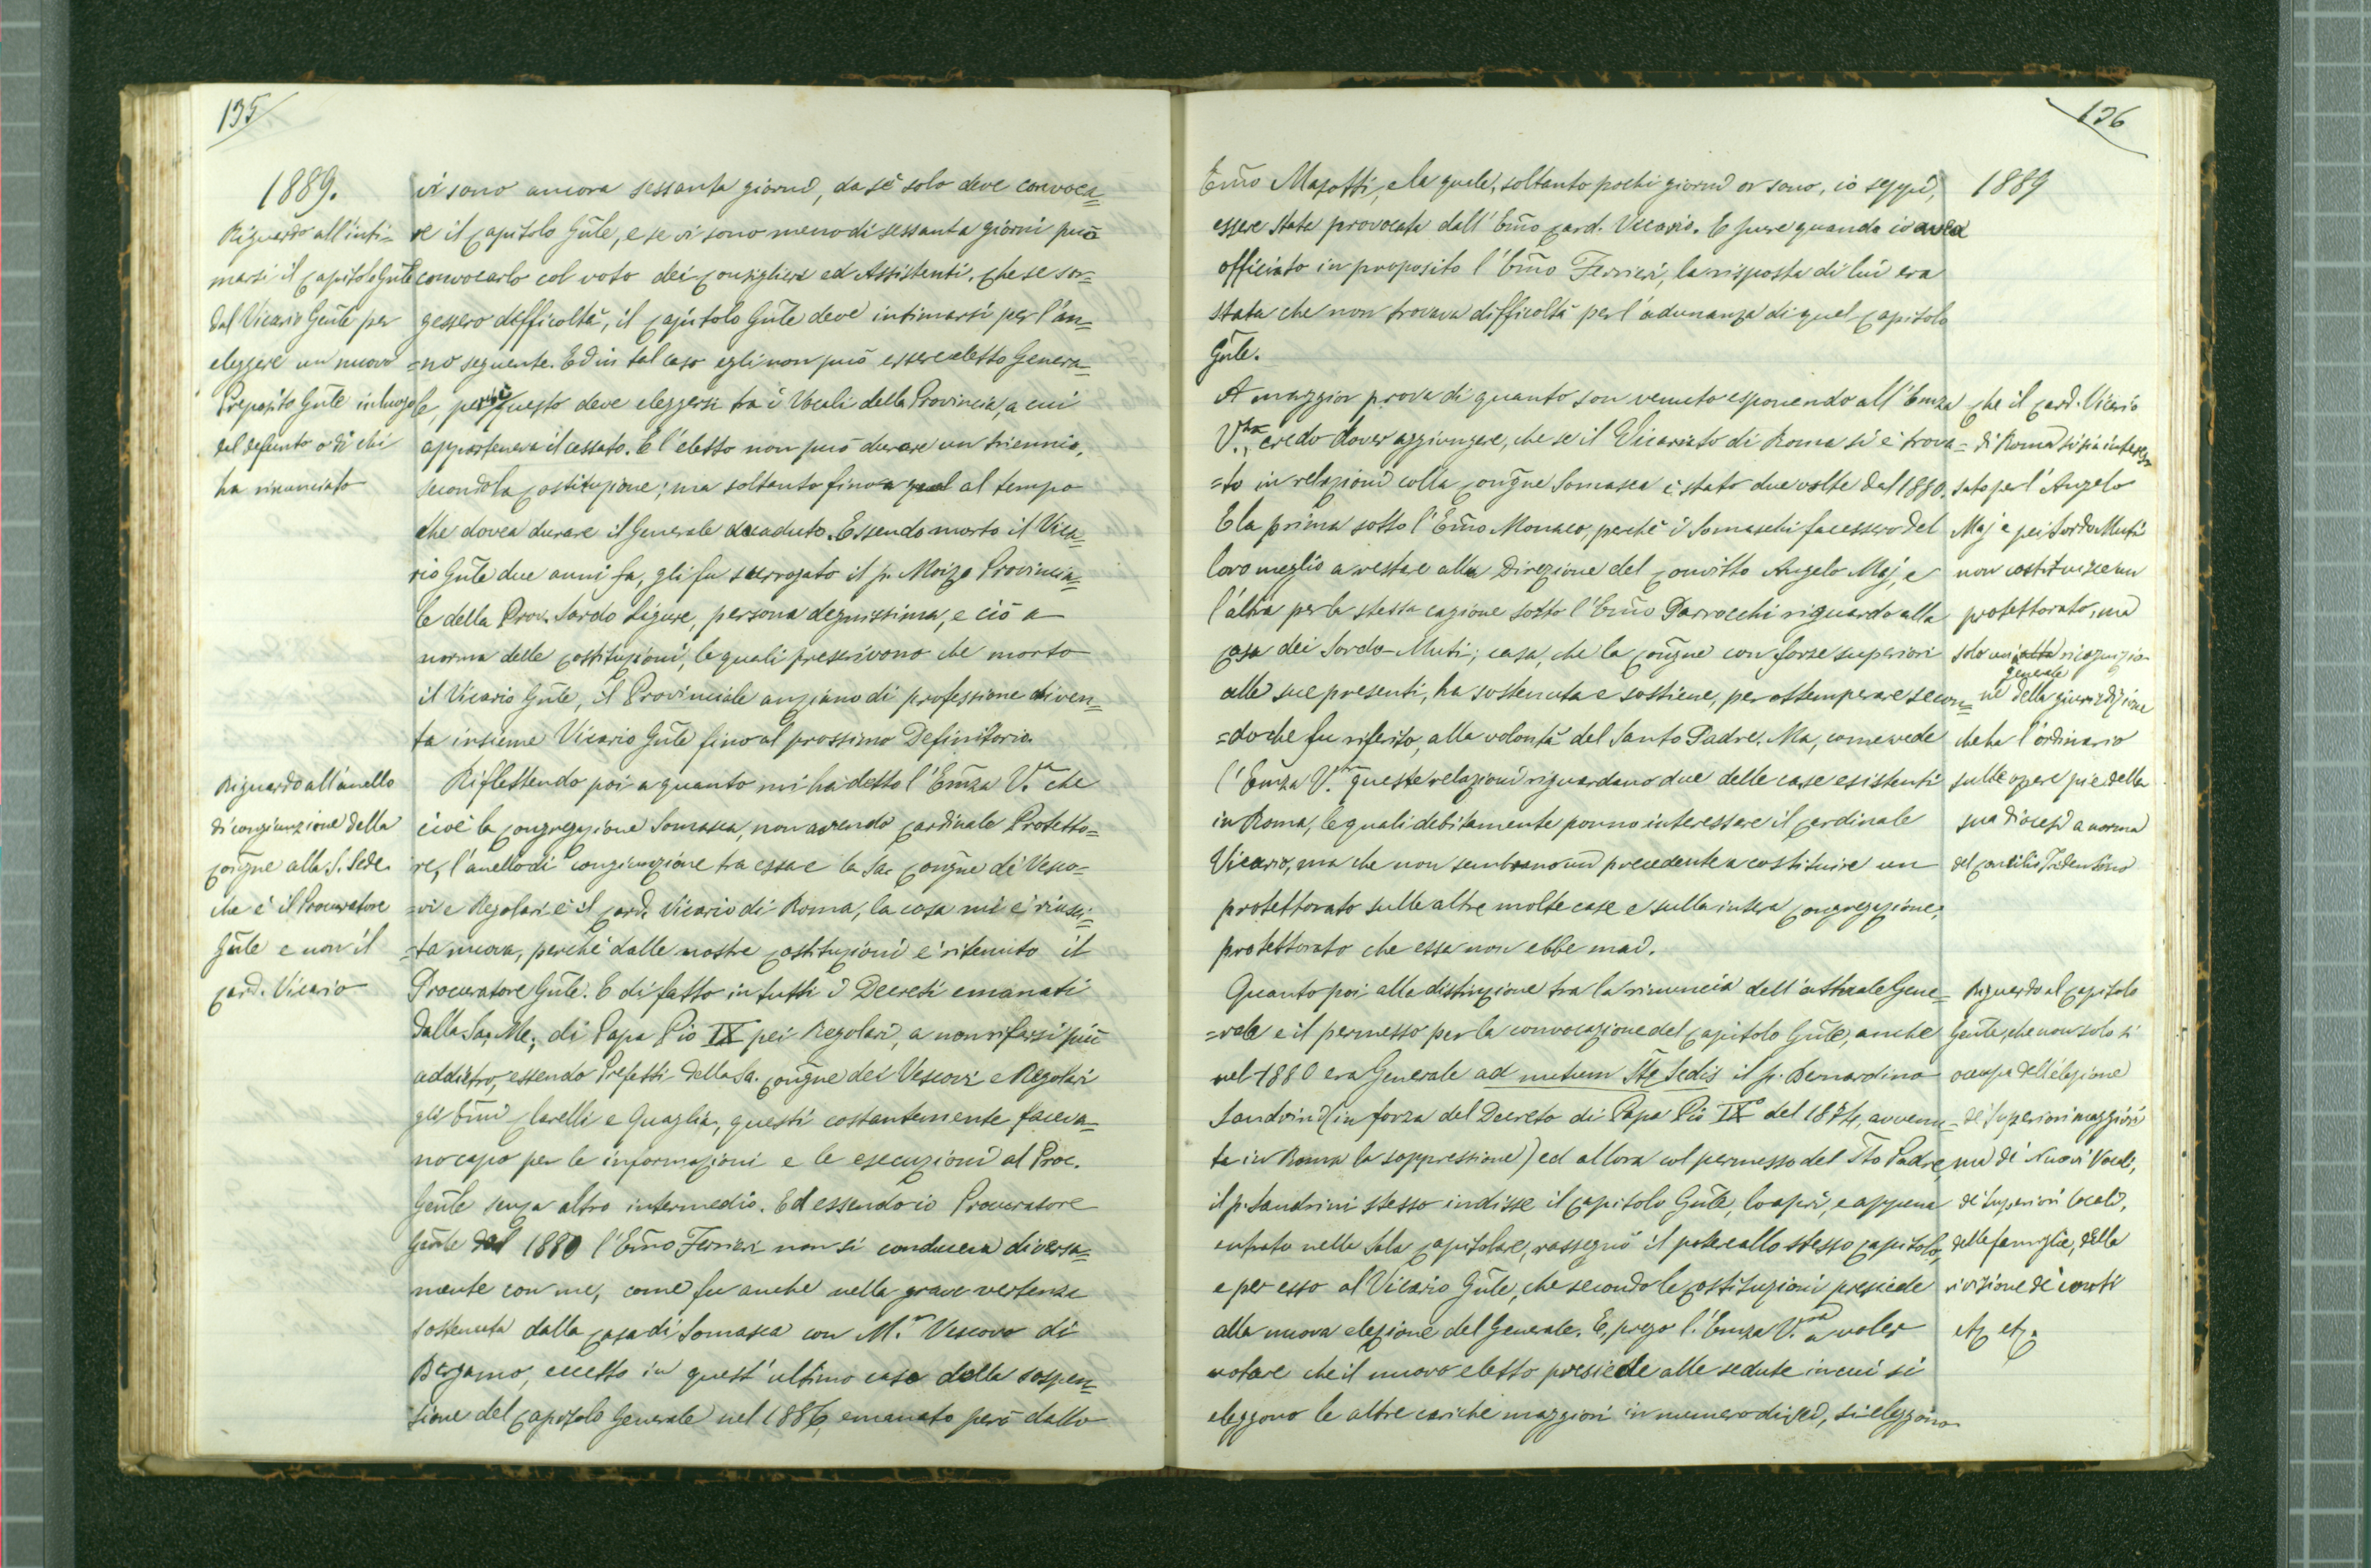 135
1889.
Riguardo all'inti=
marsi il Capitolo Gñle
dal Vicario Gñle per
eleggere un nuovo
Preposito Gñle in luogo
del defunto o di chi
ha rinunciato
vi sono ancora sessanta giorni, da sé solo deve convoca=
re il Capitolo Gñle, e se vi sono meno di sessanta giorni può
convocarlo col voto dei Consiglieri ed Assistenti. Che se sor=
gessero difficoltà, il Capitolo Gñle deve intimarsi per l'an=
=no seguente. Ed in tal caso egli non può essere eletto Genera=
le, perchè questo deve eleggersi tra i Vocali della Provincia, a cui
apparteneva il cessato. E l'eletto non può durare un triennio,
secondo la Costituzione; ma soltanto fino a quel al tempo
che dovea durare il Generale decaduto. Essendo morto il Vica=
rio Gñle due anni fa, gli fu surrogato il p. Moizo Provincia=
le della Prov. Sardo Ligure, persona degnissima, e ciò a
norma delle Costituzioni, le quali prescrivono che morto
il Vicario Gñle, il Provinciale anziano di professione diven=
ta insieme Vicario Gñle fino al prossimo Definitorio.
Riguardo all'anello
di congiunzione della
Congñe alla S. Sede
che è il Procuratore
Gñle e non il
Card. Vicario
Riflettendo poi a quanto mi ha detto l'Emza V.ra che
cioè la Congregazione Somasca, non avendo Cardinale Protetto=
re, l'anello di congiunzione tra essa e la Sac Congñe di Vesco=
=vi e Regolari è il Card. Vicario di Roma, la cosa mi è riusci=
=ta nuova, perchè dalle nostre Costituzioni è ritenuto il
Procuratore Gñle. E di fatto in tutti i Decreti emanati
dalla Sa. Me. di Papa Pio IX pei Regolari, a non rifarsi più
addietro, essendo Prefetti della Sa. Congñe dei Vescovi e Regolari
gli Emi Clarelli e Quaglia, questi costantemente faceva=
no capo per le informazioni e le esecuzioni al Proc.
Gñle senza altro intermedio. Ed essendo io Procuratore
Gñle dal 1880 l'Emo Ferrieri non si conduceva diversa=
mente con me, come fu anche nella grave vertenza
sostenuta dalla Casa di Somasca con M.r Vescovo di
Bergamo, eccetto in quest'ultimo caso della sospen=
sione del Capitolo Generale nel 1886, emanato però dallo
136
1889
Emo Masotti, e la quale, soltanto pochi giorni or sono, io seppi,
essere stata provocata dall'Emo Card. Vicario. E pure quando io avea
officiato in proposito l'Emo Ferrieri, la risposta di lui era
stata che non trovava difficoltà per l'adunanza di quel Capitolo
Gñle.
A maggior prova di quanto son venuto esponendo all'Emza
V.ra, credo dover aggiungere, che se il Vicariato di Roma si è trova=
=to in relazioni colla Congñe Somasca è stato due volte dal 1880.
E la prima sotto l'Emo Monaco, perchè i Somaschi facessero del
loro meglio a restare alla Direzione del Convitto Angelo Maj, e
l'altra per la stessa cagione sotto l'Emo Parrocchi riguardo alla
Casa dei Sordo-Muti; casa, che la Congñe con forze superiori
alle sue presenti, ha sostenuta e sostiene, per ottemperare secon=
=do che fu riferito, alla volontà del Santo Padre. Ma, come vede
l'Emza V.ra queste relazioni riguardano due delle case esistenti
in Roma, le quali debitamente ponno interessare il Cardinale
Vicario, ma che non sembrano un precedente a costituire un
protettorato sulle altre molte case e sulla intera Congregazione;
protettorato che essa non ebbe mai.
Che il Card. Vicario
di Roma si sia interes
sato per l'Angelo
Maj e pei Sordo Muti
non costituisce un
protettorato, ma
solo una ricognizio
ne generale della giurisdizione
che ha l'ordinario
sulle opere pie della
sua diocesi a norma
del Concilio Tridentino
Quanto poi alla distinzione tra la rinuncia dell'attuale Gene=
=rale e il permesso per la convocazione del Capitolo Gñle, anche
nel 1880 era Generale ad nutum Stæ Sedis il p. Bernardino
Sandrini (in forza del Decreto di Papa Pio IX° del 1874, avvenu=
ta in Roma la soppressione) ed allora col permesso del Sto Padre,
il p. Sandrini stesso indisse il Capitolo Gñle, lo aprì, e appena
entrato nella Sala Capitolare, rassegnò il potere allo stesso Capitolo,
e per esso al Vicario Gñle, che secondo le Costituzioni presiede
alla nuova elezione del Generale. E, prego l'Emza V.ra a voler
notare che il nuovo eletto presiede alle sedute in cui si
eleggono le altre cariche maggiori in numero di sei, si eleggono
Riguardo al Capitolo
Gñle, che non solo si
occupa dell'elezione
de' Superiori maggiori
ma di Nuovi Vocali,
de' Superiori locali,
delle famiglie, della
revisione de' conti
etc etc.